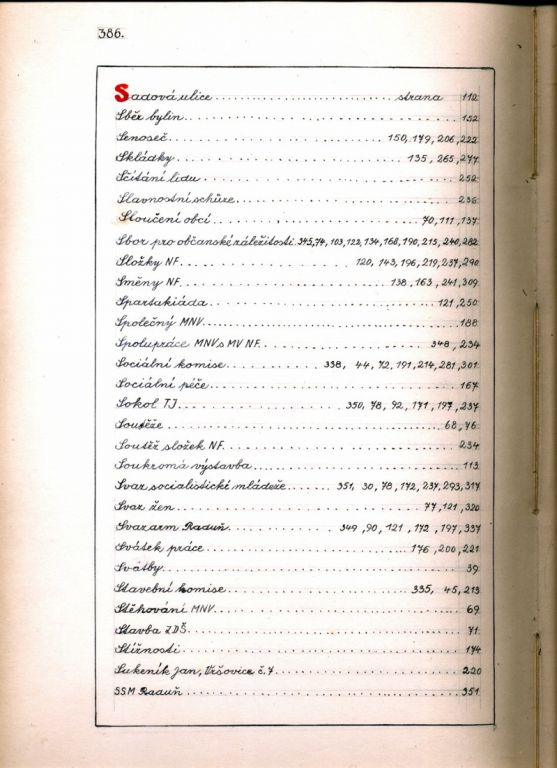 386.
Sadová ulice .......... strana 112
Sběr bylin .......... 152
Senoseč .......... 150, 179, 206, 222
Skládky .......... 135, 265, 277
Sčítání lidu .......... 252
Slavnostní schůze .......... 236
Sloučení obcí .......... 70, 111, 137
Sbor pro občanské záležitosti 345, 74, 103, 122, 134, 168, 190, 213, 240, 282
Složky NF .......... 120, 143, 196, 219, 237, 290
Směny NF .......... 138, 163, 241, 309
Spartakiáda .......... 121, 250
Společný MNV .......... 188
Spolupráce MNV s MV NF .......... 348, 234
Sociální komise .......... 338, 44, 72, 191, 214, 281, 301
Sociální péče .......... 167
Sokol TJ .......... 350, 78, 92, 171, 197, 237
Soutěže .......... 68, 76
Soutěž složek NF .......... 234
Soukromá výstavba .......... 113
Svaz socialistické mládeže ...... 351, 30, 78, 172, 237, 293, 317
Svaz žen .......... 77, 121, 320
Svazarm Raduň .......... 349, 90, 121, 172, 197, 337
Svátek práce .......... 176, 200, 221
Svatby .......... 39
Stavební komise .......... 335, 45, 213
Stěhování MNV .......... 69
Stavba ZDŠ .......... 71
Stížnosti .......... 174
Sukeník Jan, Vršovice č. 7 .......... 220
SSM Raduň .......... 351